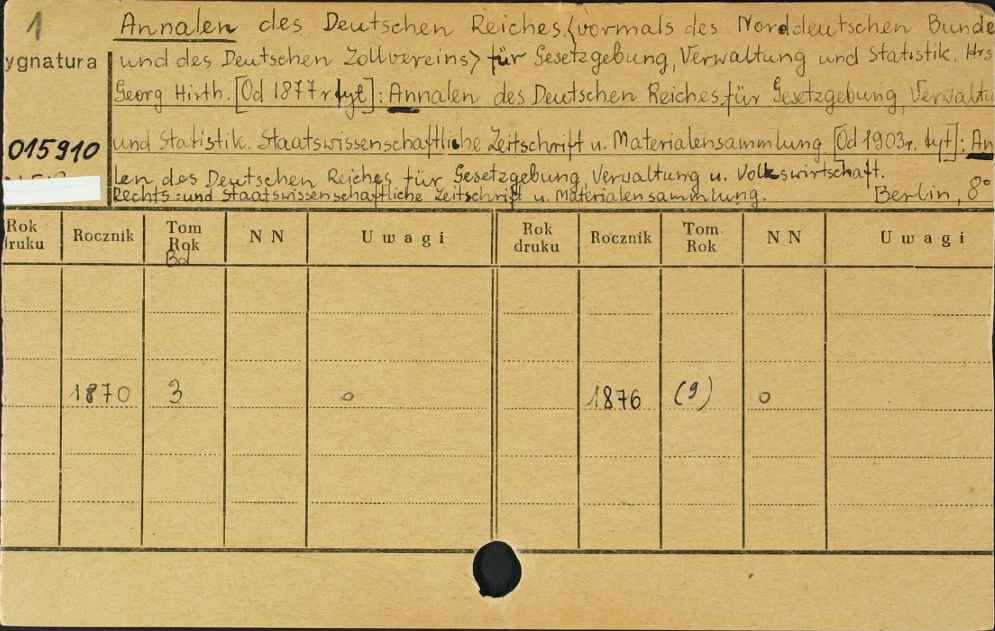 1
Annalen des Deutschen Reiches (vormals des Norddeutschen Bunde
ygnatura
und des Deutschen Zollvereins) für Gesetzgebung, Verwaltung und Statistik. Hrs
Georg Hirth. [Od 1877 r. tyt]: Annalen des Deutschen Reiches für Gesetzgebung, Verwaltu
015910
und Statistik. Staatswissenschaftliche Zeitschrift u. Materialensammlung [Od 1903 r. tyt]: An
len des Deutschen Reiches für Gesetzgebung Verwaltung u. Volkswirtschaft.
Rechts- und Staatswissenschaftliche Zeitschrift u. Materialensammlung. Berlin, 8°
Rok druku Rocznik Tom Rok Bd N N Uwagi Rok druku Rocznik Tom. Rok N N Uwagi
1870 3 o 1876 (9) o